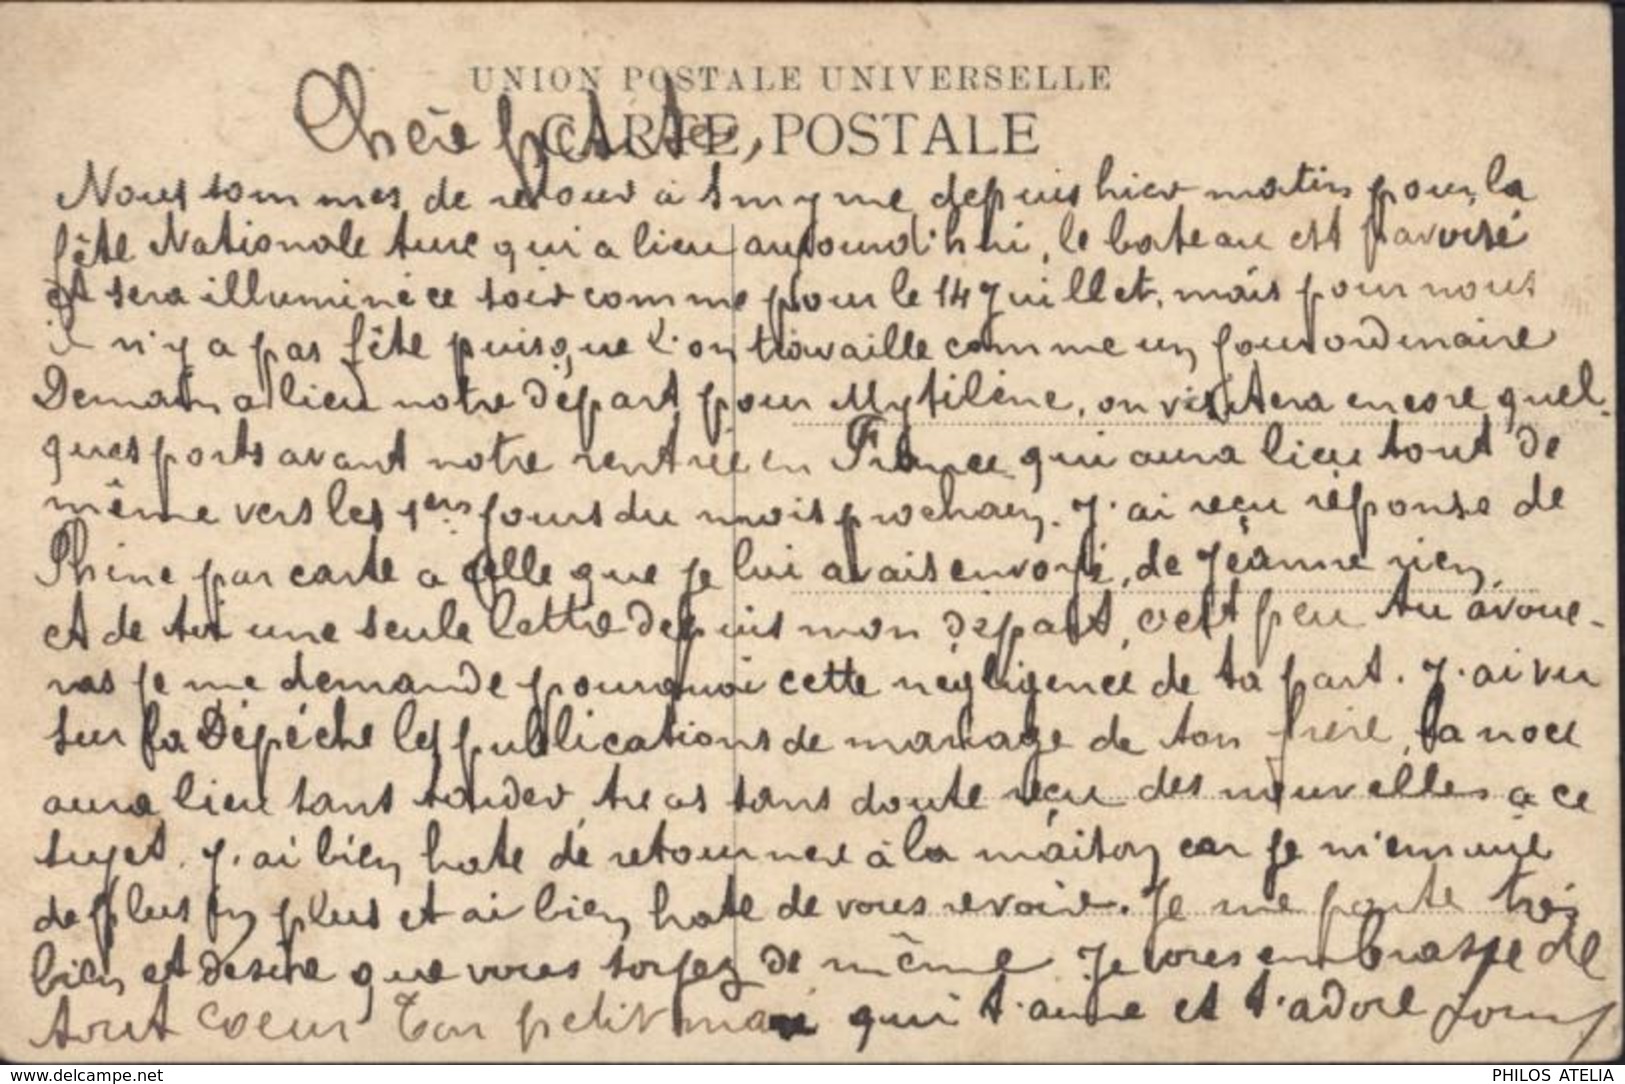 UNION POSTALE UNIVERSELLE
CARTE POSTALE
Chère petite,
Nous sommes de retour à Smyrne depuis hier matin pour la
fête Nationale turc qui a lieu aujourd'hui, le bateau est pavoisé
et sera illuminé ce soir comme pour le 14 Juillet, mais pour nous
il n'y a pas fête puisque l'on travaille comme un jour ordinaire
Demain a lieu notre départ pour Mytilène, on visitera encore quel-
ques ports avant notre rentrée en France qui aura lieu tout de
même vers les 1ers jours du mois prochain. J'ai reçu réponse de
Phine par carte a celle que je lui avais envoyé, de Jeanne rien,
et de toi une seule lettre depuis mon départ, c'est peu tu avoue-
ras je me demande pourquoi cette négligence de ta part. J'ai vu
sur la Dépéche les publications de mariage de ton frère, la noce
aura lieu sans tarder, tu as sans doute reçu des nouvelles a ce
sujet. J'ai bien hate de retourner à la maison car je m'ennuie
de plus en plus et ai bien hate de vous revoir. Je me porte très
bien et desire que vous soyez de même. Je vous embrasse de
tout coeur Ton petit mari qui t'aime et t'adore
www.delcampe.net
PHILOS ATELIA